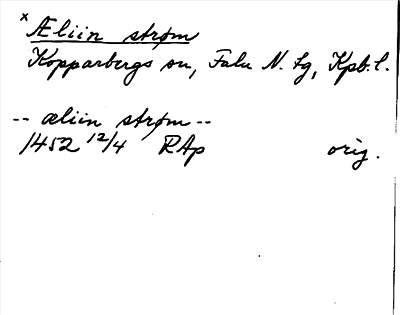 x Æliin strøm
Kopparbergs sn, Falu N. tg, Kpb. l.
-- æliin strøm --
1452 12/4 RAp orig.